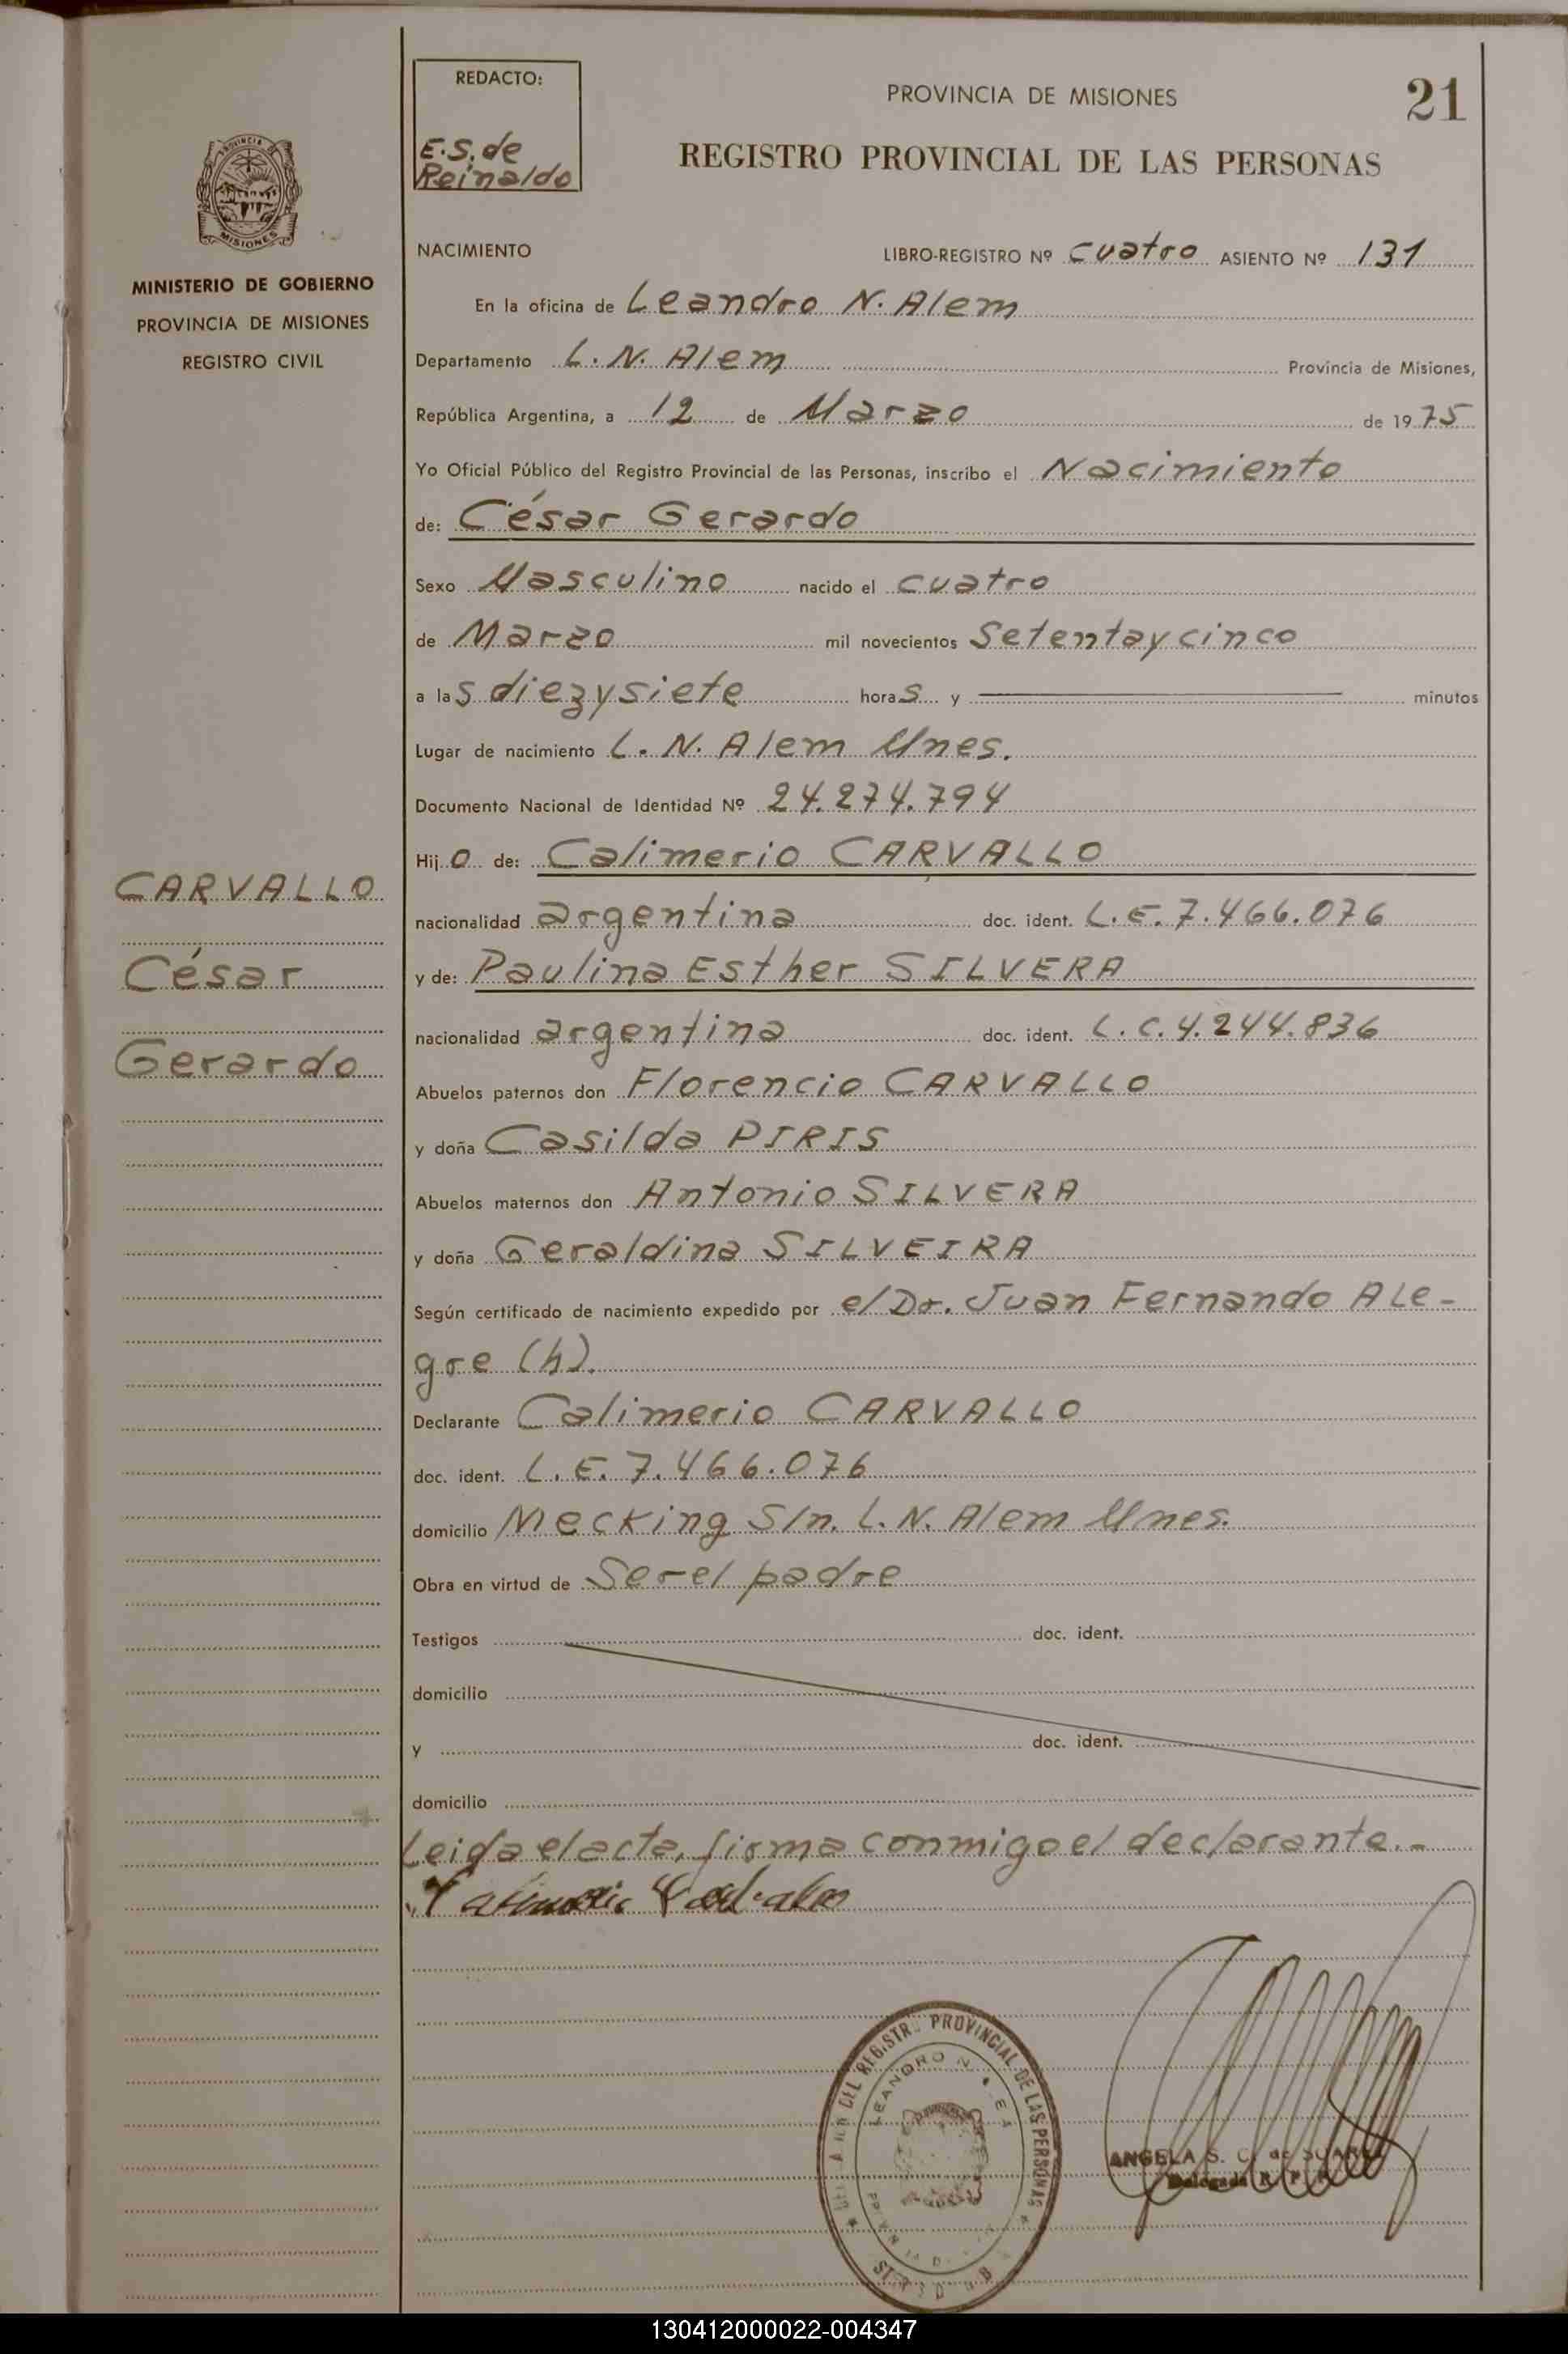 REDACTO:
E.S. de
Reinaldo
PROVINCIA DE MISIONES
21
REGISTRO PROVINCIAL DE LAS PERSONAS
MISIONES
MINISTERIO DE GOBIERNO
PROVINCIA DE MISIONES
REGISTRO CIVIL
NACIMIENTO LIBRO-REGISTRO Nº cuatro ASIENTO Nº 131
En la oficina de Leandro N. Alem
Departamento L. N. Alem Provincia de Misiones,
República Argentina, a 12 de Marzo de 1975
Yo Oficial Público del Registro Provincial de las Personas, inscribo el Nacimiento
de: César Gerardo
Sexo Masculino nacido el cuatro
de Marzo mil novecientos Setentaycinco
a las diezysiete horas y minutos
Lugar de nacimiento L. N. Alem Mnes.
Documento Nacional de Identidad Nº 24.274.794
Hijo de: Calimerio CARVALLO
nacionalidad argentina doc. ident. L.E. 7.466.076
y de: Paulina Esther SILVERA
nacionalidad argentina doc. ident. L.C. 4.244.836
Abuelos paternos don Florencio CARVALLO
y doña Casilda PIRIS
Abuelos maternos don Antonio SILVERA
y doña Geraldina SILVEIRA
Según certificado de nacimiento expedido por el Dr. Juan Fernando ALe-
gre (h).
Declarante Calimerio CARVALLO
doc. ident. L.E. 7.466.076
domicilio Mecking S/n. L. N. Alem Mnes.
Obra en virtud de Ser el padre
Testigos doc. ident.
domicilio
y doc. ident.
domicilio
Leida el acta, firma conmigo el declarante.-
CARVALLO
César
Gerardo
DEL REGISTR. PROVINCIAL DE LAS PERSONAS
LEANDRO N.
ANGELA S. C. de SUAREZ
Delegada R. P. P.
130412000022-004347